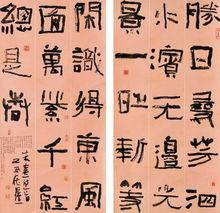 勝日尋芳泗
水濱无邊光
景一旹新等
閒識得東風
面萬紫千紅
總是萅